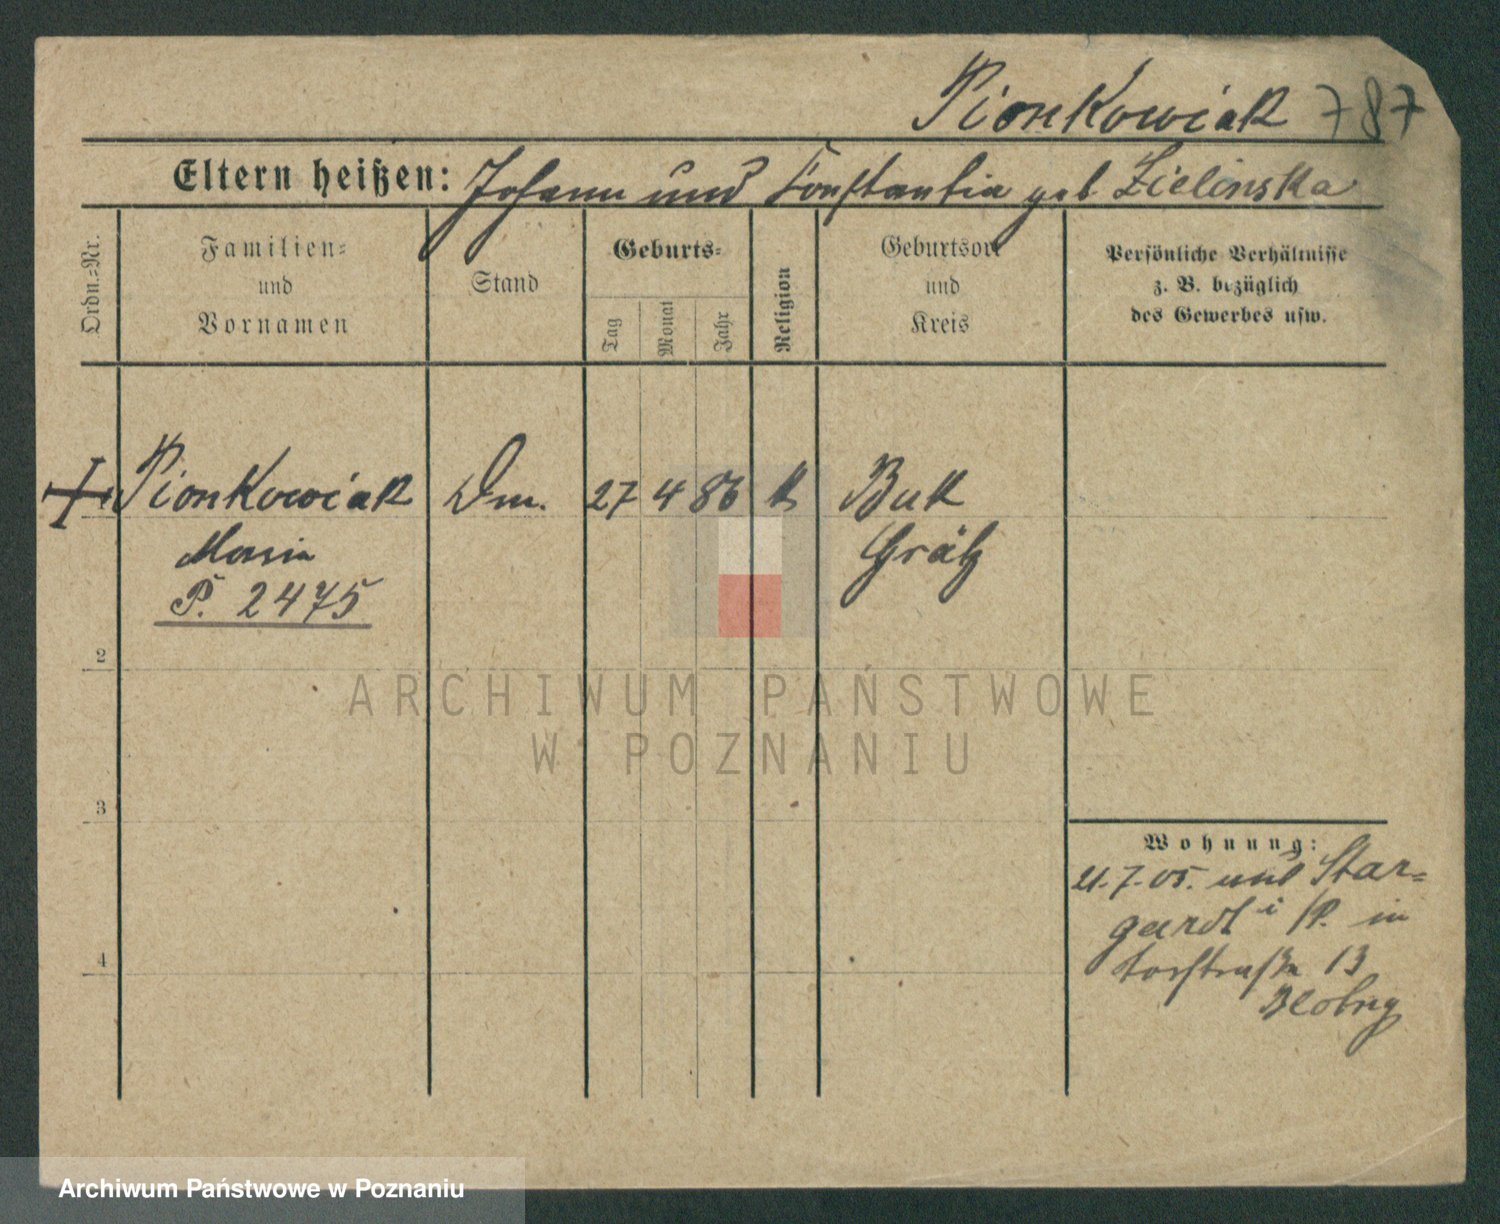 Pionkowiak 787
Eltern heißen: Johann und Constantia geb Zielinska
Ordn.=Nr.
Familien=
und
Vornamen
Stand
Geburts=
Tag
Monat
Jahr
Religion
Geburtsort
und
Kreis
Persönliche Verhältnisse
z. B. bezüglich
des Gewerbes usw.
Pionkowiak Dm. 27 4 86 k Buk
Maria Grätz
P. 2475
2
3
4
ARCHIWUM PAŃSTWOWE
W POZNANIU
Wohnung:
21.7.05. Star=
gardt i/P. in
13
Archiwum Państwowe w Poznaniu